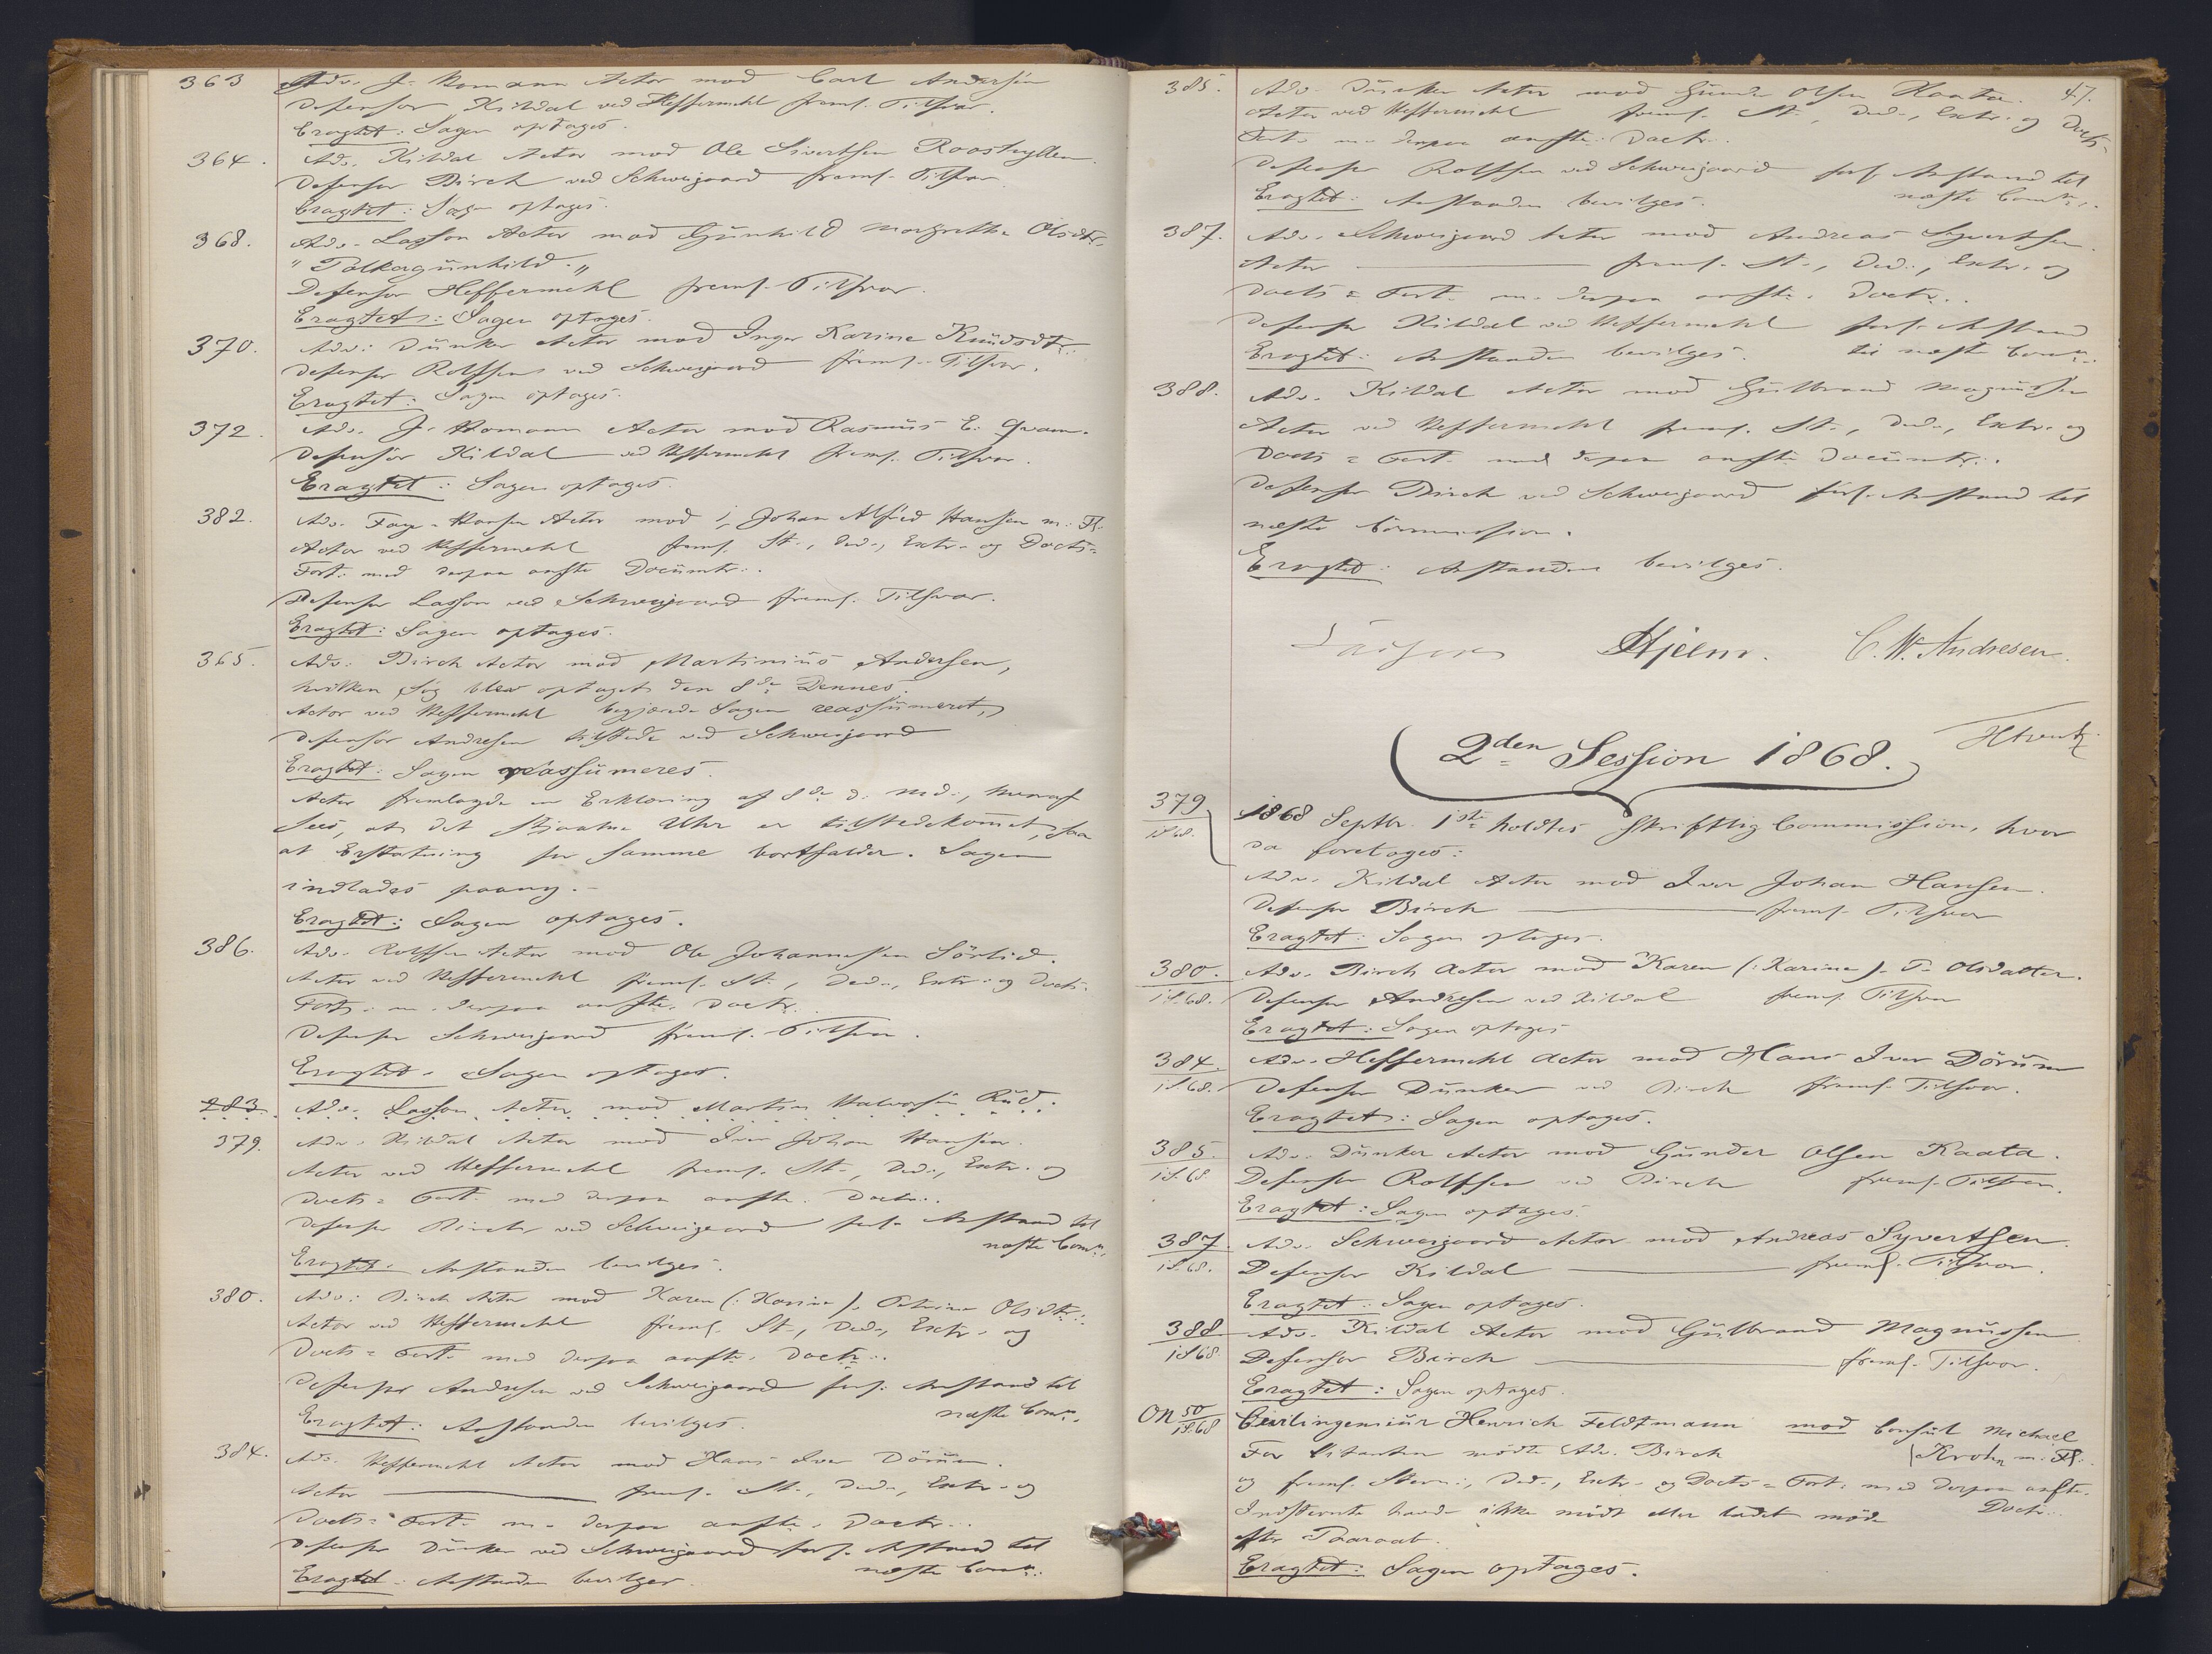 363 Adv. J. Homann Actor mod Carl Andersen
Defensor Kildal ved Heffermehl freml. Tilsvar.
Eragtet: Sagen optages.
364. Adv. Kildal Actor mod Ole Sivertsen Rooshyllen.
Defensor Birch ved Schweigaard freml. Tilsvar
Eragtet: Sagen optages.
368. Adv. Lasson Actor mod Gunhild Margrethe Olsdtr.
"Polkagunhild."
Defensor Heffermehl freml. Tilsvar.
Eragtet: Sagen optages.
370. Adv. Dunker Actor mod Inger Karine Knudsdtr.
Defensor Rolffsen ved Schweigaard freml. Tilsvar.
Eragtet: Sagen optages.
372. Adv. J. Homann Actor mod Rasmus E. Qvam.
Defensor Kildal ved Heffermehl freml. Tilsvar.
Eragtet: Sagen optages.
382. Adv. Faye-Hansen Actor mod 1, Johan Alfred Hansen m. Fl.
Actor ved Heffermehl freml. St., Ded., Extr. og Docts=
Fort. med derpaa anfte Documtr.
Defensor Lasson ved Schweigaard freml. Tilsvar.
Eragtet: Sagen optages.
365. Adv. Birch Actor mod Martinius Andersen,
hvilken Sag blev optaget den 8de Dennes.
Actor ved Heffermehl begjærede Sagen reassumeret,
Defensor Andresen tilstede ved Schweigaard
Eragtet: Sagen reassumeres.
Actor fremlagde en Erklæring af 8de d. Md., hvoraf
sees, at det stjaalne Uhr er tilstedekommet, saa
at Erstatning for samme bortfalder. Sagen
indlades paany.
Eragtet: Sagen optages.
386. Adv. Rolffsen Actor mod Ole Johannessen Sörlid.
Actor ved Heffermehl freml. St., Ded., Extr. og Docts=
Fort. m. derpaa anfte. Doctr.
Defensor Schweigaard freml. Tilsvar.
Eragtet: Sagen optages.
283. Adv. Lasson Actor mod Martin Halvorsen Rud.
379. Adv. Kildal Actor mod Iver Johan Hansen.
Actor ved Heffermehl freml. St., Ded., Extr. og
Docts= Fort. med derpaa anfte. Doctr.
Defensor Birch ved Schweigaard forl. Anstand til
næste Comn.
Eragtet: Anstanden bevilges.
380. Adv. Birch Actor mod Karen (: Karine). Petrine Olsdtr.
Actor ved Heffermehl freml. St., Ded., Extr. og
Docts= Fort. med derpaa anfte. Doctr.
Defensor Andresen ved Schweigaard forl. Anstand til
næste Comn.
Eragtet: Anstanden bevilges.
384. Adv. Heffermehl Actor mod Hans Iver Dörum.
Actor freml. St., Ded., Extr. og
Docts= Fort. m. derpaa anfte. Doctr.
Defensor Dunker ved Schweigaard forl. Anstand til
næste Comn.
Eragtet: Anstanden bevilges.
47.
385. Adv. Dunker Actor mod Gunder Olsen Kaata.
Actor ved Heffermehl freml. St., Ded., Extr. og Docts=
Fort. m. derpaa anfte. Doctr.
Defensor Rolffsen ved Schweigaard forl. Anstand til
næste Comn.
Eragtet: Anstanden bevilges.
387. Adv. Schweigaard Actor mod Andreas Syvertsen.
Actor freml. St., Ded., Extr. og
Docts= Fort. m. derpaa anfte. Doctr.
Defensor Kildal ved Heffermehl forl. Anstand
til næste Comn.
Eragtet: Anstanden bevilges.
388. Adv. Kildal Actor mod Gulbrand Magnussen
Actor ved Heffermehl freml. St., Ded., Extr. og
Docts= Fort. med derpaa anfte Documtr.
Defensor Birch ved Schweigaard forl. Anstand til
næste Commission.
Eragtet: Anstanden bevilges.
Hjelm. C. W. Andresen.
2den Session 1868.
379 1868 Septbr. 1ste holdtes skriftlig Commission, hvor
1S.68. da foretoges:
Adv. Kildal Actor mod Iver Johan Hansen.
Defensor Birch freml. Tilsvar
Eragtet: Sagen optages.
380. Adv. Birch Actor mod Karen (: Karine). P. Olsdatter.
1S.68. Defensor Andresen ved Kildal freml. Tilsvar
Eragtet: Sagen optages
384. Adv. Heffermehl Actor mod Hans Iver Dörum
1S.68. Defensor Dunker ved Birch freml. Tilsvar.
Eragtet: Sagen optages.
385. Adv. Dunker Actor mod Gunder Olsen Kaata.
1S.68 Defensor Rolffsen ved Birch freml. Tilsvar.
Eragtet: Sagen optages.
387. Adv. Schweigaard Actor mod Andreas Syvertsen.
1S.68. Defensor Kildal freml. Tilsvar.
Eragtet: Sagen optages.
388 Adv. Kildal Actor mod Gulbrand Magnussen
1S68. Defensor Birch freml. Tilsvar.
Eragtet: Sagen optages.
ON 50 Civilingeniør Henrich Feldtmann mod Consul Michael
1S.68 For Citanten mödte Adv. Birch (Krohn m. Fl.
og freml. Stevn., Ded., Extr. og Docts= Fort. med derpaa anfte.
Doctr.
Indstevnte havde ikke mödt eller ladet möde
efter Paaraab.
Eragtet: Sagen optages.